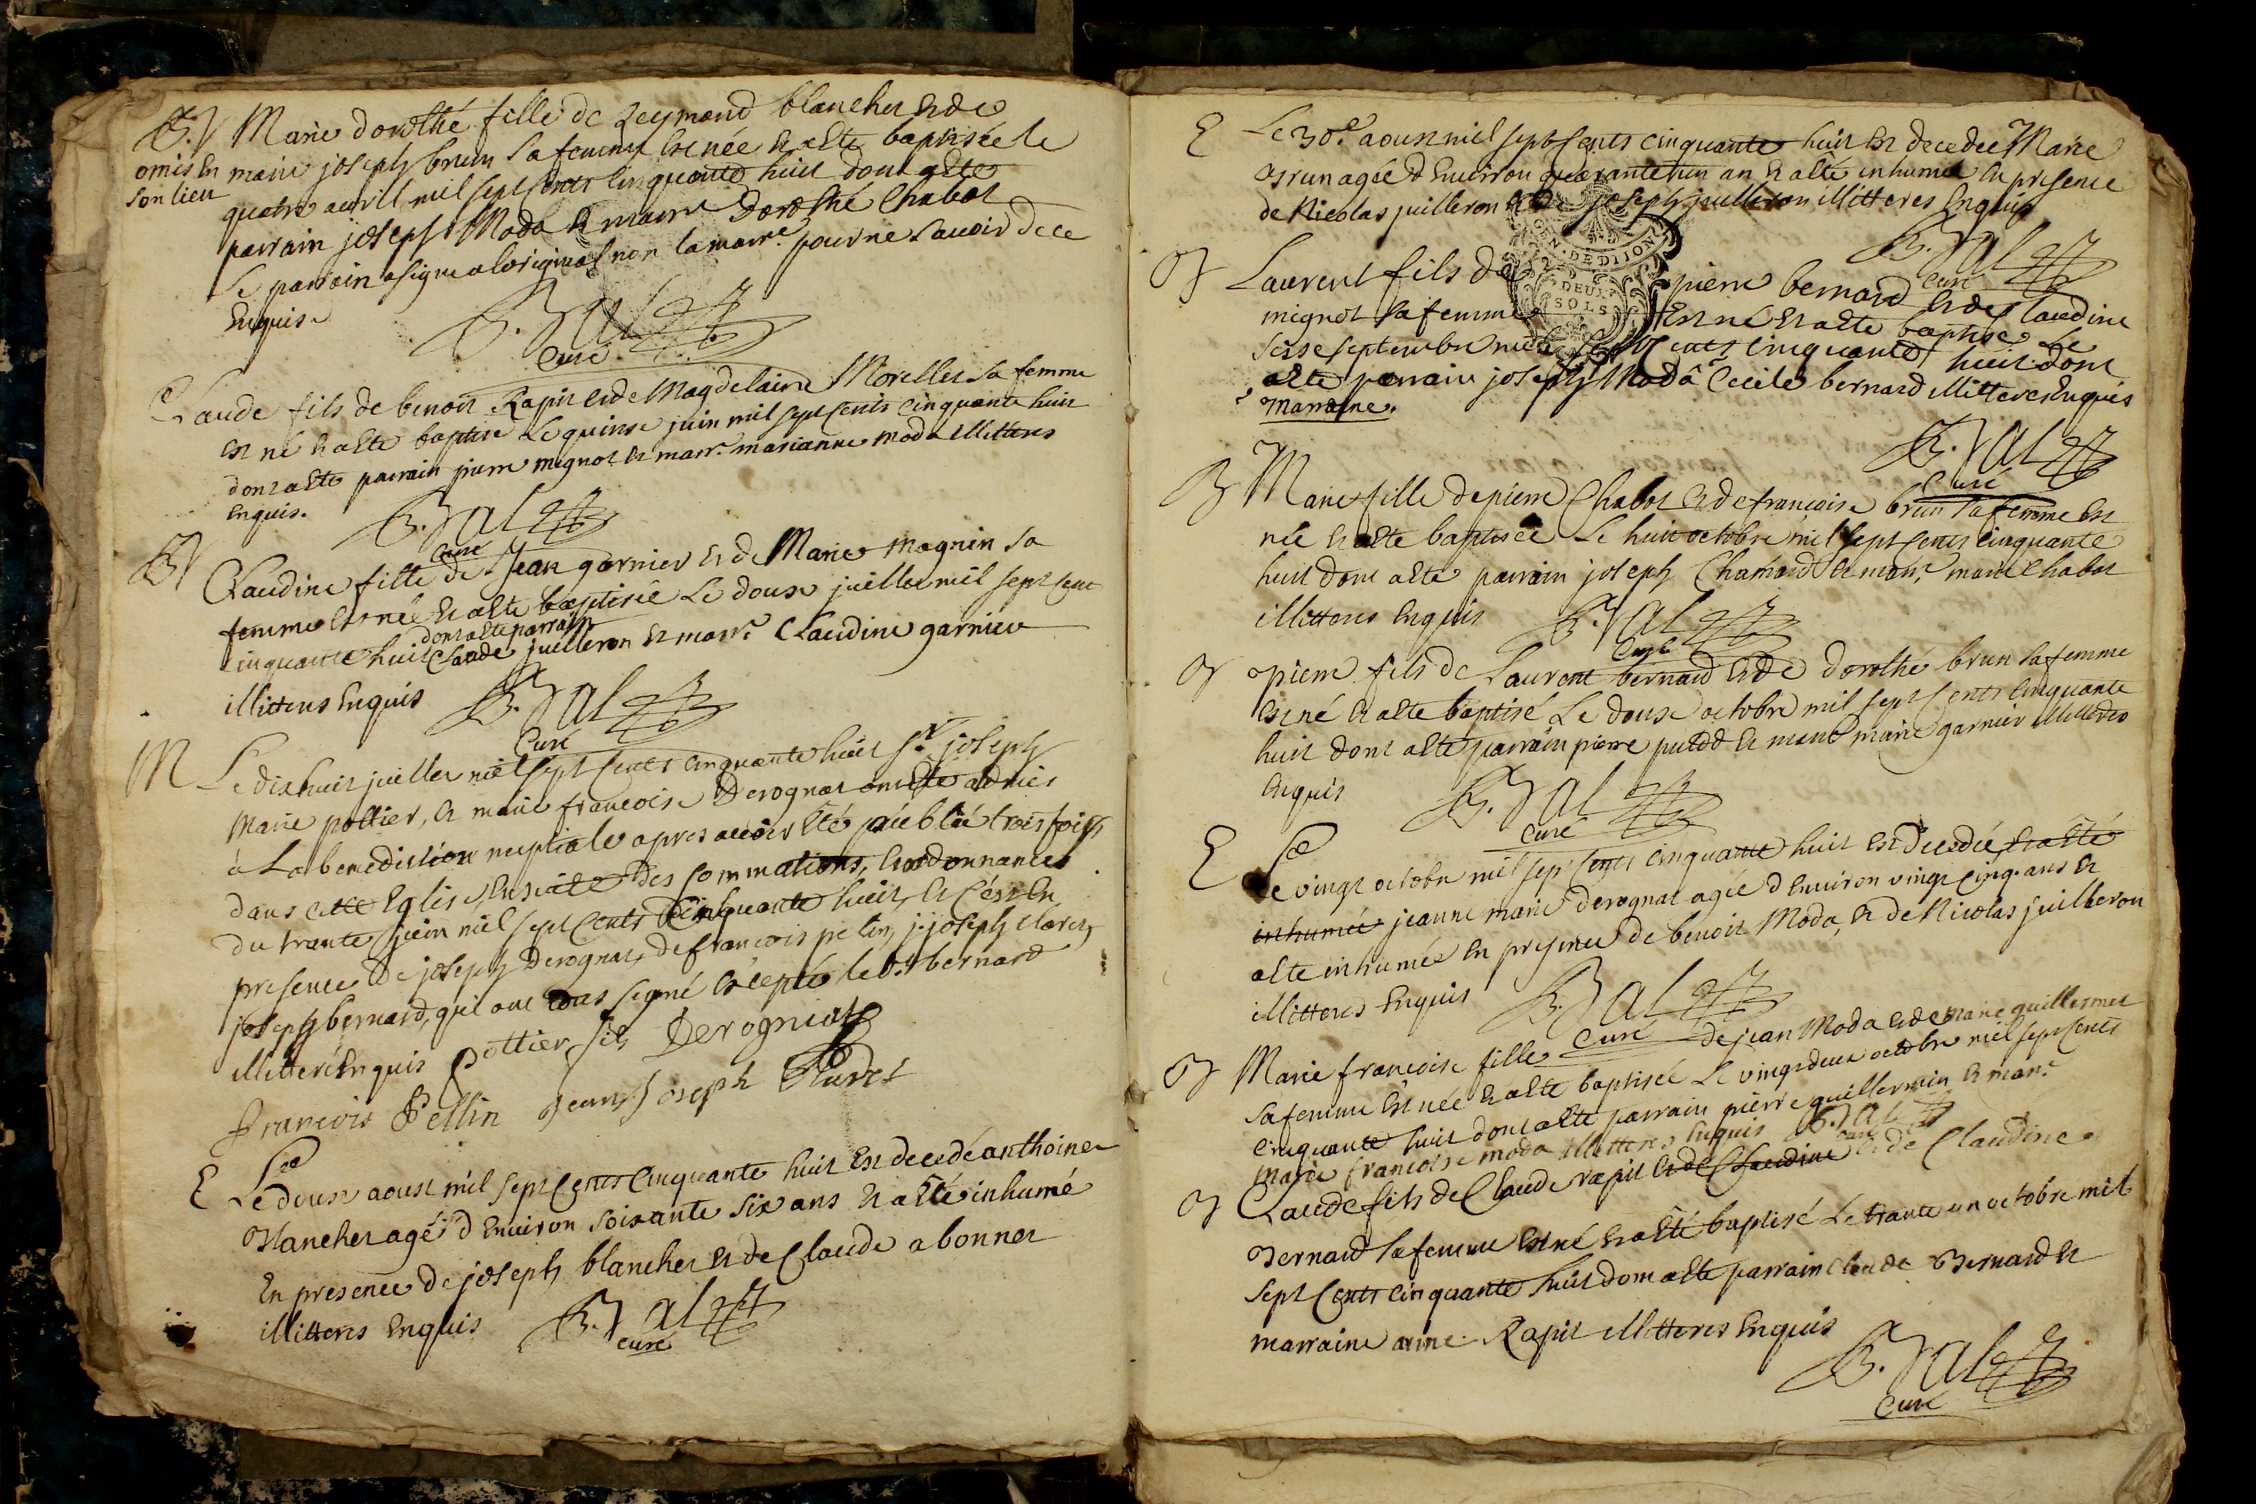 B. Marie dorothé fille de Reymond blanchet et de
omis en marie joseph brun sa femme est née et a esté baptisée le
son lieu quatre avrill mil sept cents cinquante huit dont a esté
parrain joseph Moda et marre dorothé Chabot
Le parrain a signé a loriginal non la marre pour ne savoir de ce
Enquise
B. Jal
Curé
Claude fils de benoit Rapit et de Magdelaine Morellet sa femme
est né et a esté baptisé Le quinse juin mil sept cents cinquante huit
dont a esté parrain pierre mignot et marre marianne moda illitteres
enquis.
B. Jal
Curé
B Claudine fille de Jean garnier et de Marie Magnin sa
femme est née et a esté baptisée Le douse juillet mil sept cent
dont a esté parrain
cinquante huit Claude juilleron et marre Claudine garnier
illitteres Enquis
B. Jal
Curé
M Le dix huit juillet mil sept cents cinquante huit Sr joseph
Marie pottier, et marie francoise Derognat ont esté admis
à La benediction nuptiale apres avoir esté publié trois fois
dans cette Eglise, Ensuite des sommations, et ordonnances
du trante juin mil sept cents cinquante huit, et c'est En
presence de joseph Derognat, de francois pelin, j. joseph
joseph bernard, qui ont tous signé excepté led. bernard
illitteré Enquis Pottier fils Derogniat
francois Pellin jean joseph
E Le douse aoust mil sept cents cinquante huit est decedé anthoine
blanchet agé d'Environ soixante six ans et a esté inhumé
En presence de joseph blanchet et de Claude abonnet
illitteres Enquis
B. Jal
Curé
E Le 30e aoust mil sept cents cinquante huit est decedée Marie
brun agée d'Environ quarante un an et a esté inhumée En presence
de Nicolas juilleron et de joseph juilleron illitteres Enquis
B. Jal
Curé
GEN. DE DIJON
DEUX
SOLS
B Laurent fils de pierre bernard et de Claudine
mignot sa femme Est né et a esté baptisé Le
seise septembre mil sept cents cinquante huit dont
a esté parrain joseph Moda Cecile bernard illitteres Enquis
Marraine.
B. Jal
Curé
B Marie fille de pierre Chabot et de francoise brun sa femme est
née et a esté baptisée Le huit octobre mil sept cents cinquante
huit dont a esté parrain joseph Chamard et marr. marie Chabot
illitteres Enquis
B. Jal
Curé
B pierre fils de Laurent bernard et de dorothé brun sa femme
est né et a esté baptisé Le douse octobre mil sept cents cinquante
huit dont a esté parrain pierre putod et marre marie garnier illitteres
Enquis
B. Jal
Curé
E Le vingt octobre mil sept cents cinquante huit est Decedée et a esté
inhumée jeanne marie derognat agée d'Environ vingt cinq ans et
a esté inhumée En presence de benoit Moda, et de Nicolas juilleron
illitteres Enquis
B. Jal
Curé
B Marie francoise fille de jean Moda et de marie guillermet
sa femme est née et a esté baptisée Le vingt deux octobre mil sept cents
cinquante huit dont a esté parrain pierre guillermin et marr.
Marie francoise moda illitteres Enquis B. Jal
Curé
B Claude fils de Claude rapit et de Claudine et de Claudine
Bernard sa femme est né et a esté baptisé Le trante un octobre mil
sept cents cinquante huit dont a esté parrain Claude Bernard et
marraine anne Rapit illitteres Enquis
B. Jal
Curé